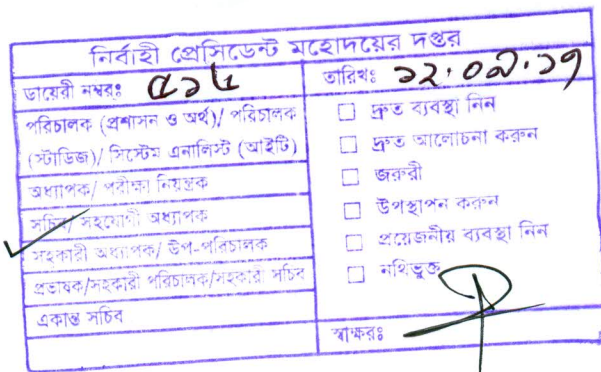 নির্বাহী প্রেসিডেন্ট মহোদয়ের দপ্তর
ডায়েরী নম্বরঃ ৫১৬
তারিখঃ ১২.০৯.১৭
পরিচালক (প্রশাসন ও অর্থ)/ পরিচালক
(স্টাডিজ)/ সিস্টেম এনালিস্ট (আইটি)
অধ্যাপক/ পরীক্ষা নিয়ন্ত্রক
সচিব/ সহযোগী অধ্যাপক
সহকারী অধ্যাপক/ উপ-পরিচালক
প্রভাষক/সহকারী পরিচালক/সহকারী সচিব
একান্ত সচিব
দ্রুত ব্যবস্থা নিন
দ্রুত আলোচনা করুন
জরুরী
উপস্থাপন করুন
প্রয়েজনীয় ব্যবস্থা নিন
নথিভুক্ত
স্বাক্ষরঃ